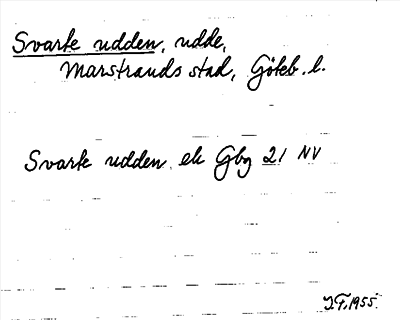 Svarte udden, udde,
Marstrands stad, Göteb. l.
Svarte udden ek Gbg 21 NV
J.F. 1955.